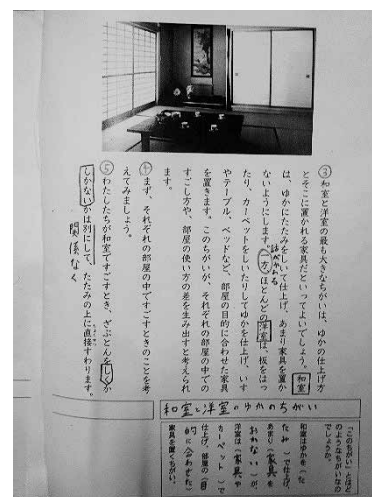 ③和室と洋室の最も大きなちがいは、ゆかの仕上げ方
とそこに置かれる家具だといってよいでしょう。和室
は、ゆかにたたみをしいて仕上げ、あまり家具を置か
ないようにします。一方、ほとんどの洋室は、板をはっ
話がかわる
たり、カーペットをしいたりしてゆかを仕上げ、いす
やテーブル、ベッドなど、部屋の目的に合わせた家具
を置きます。このちがいが、それぞれの部屋の中での
すごし方や、部屋の使い方の差を生み出すと考えられ
ます。
④まず、それぞれの部屋の中ですごすときのことを考
えてみましょう。
⑤わたしたちが和室ですごすとき、ざぶとんをしくか
しかないかは別にして、たたみの上に直接すわります。
関係なく
和室と洋室のゆかのちがい
「このちがい」とはど
のようなちがいなの
でしょうか。
和室はゆかを(た
たみ)で仕上げ、
あまり(家具を
おかない)が、
洋室は(家具や
カーペット)で
仕上げ、部屋の(目
的に合わせた)
家具を置くちがい。